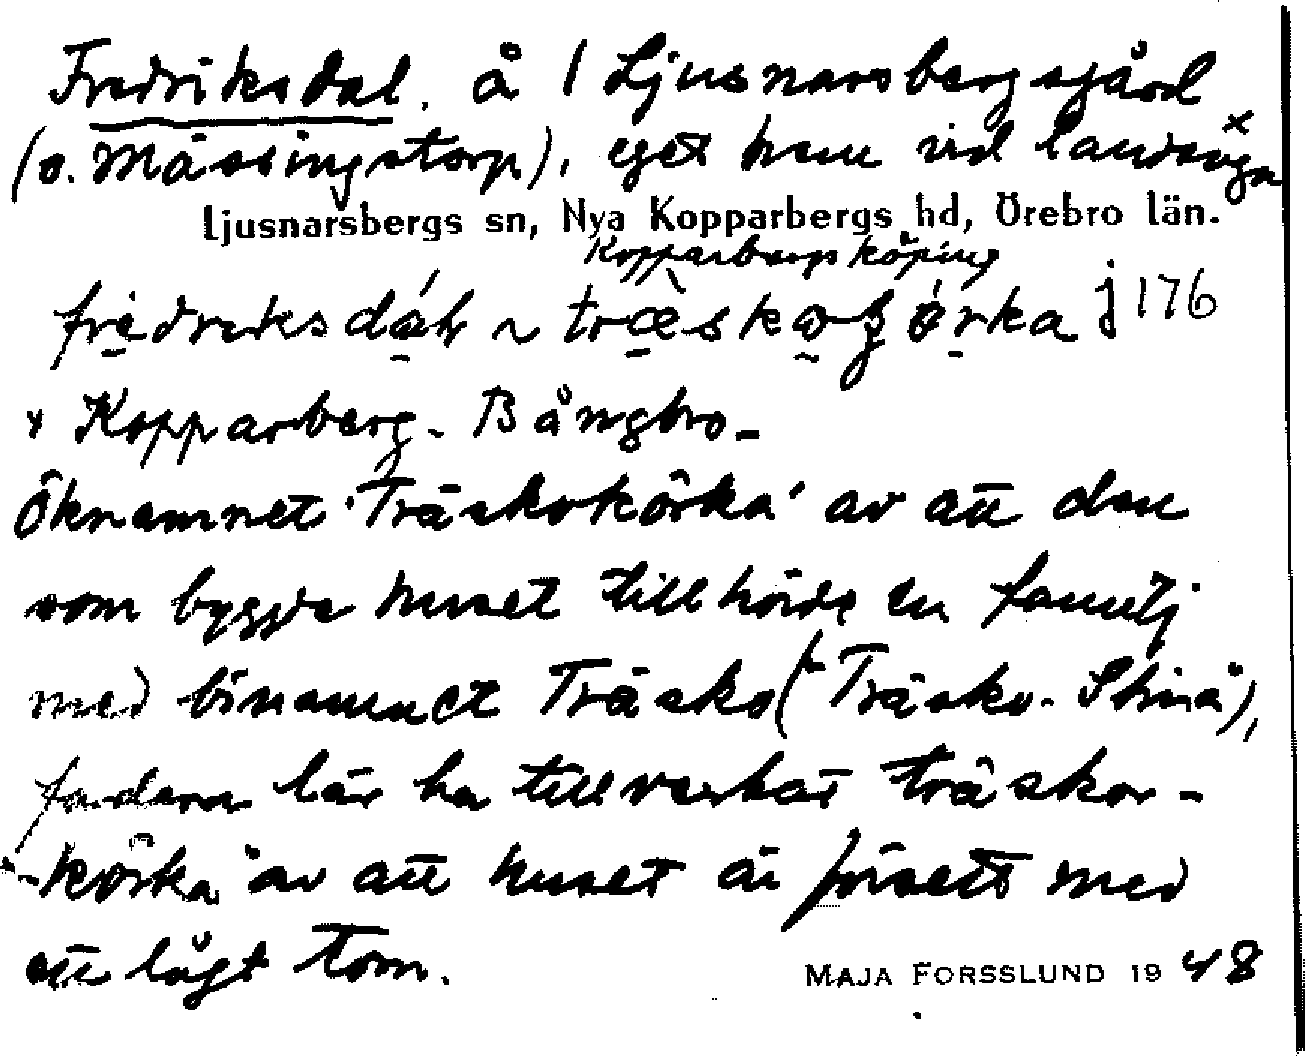 Fredriksdal. å 1 Ljusnarsbergsgård
(o. Mässingstorp), eget hem vid landsväga x
Ljusnarsbergs sn, Nya Kopparbergs hd, Örebro län.
Kopparbergs köping
j 176
x Kopparberg - Bångbro -
Öknamnet 'Träskokörka' av att den
som byggde huset tillhörde en familj
med binamnet Träsko (Träsko-Stina),
fadern lär ha tillverkat träskor -
"-körka" av att huset är försett med
ett lågt torn.
MAJA FORSSLUND 1948